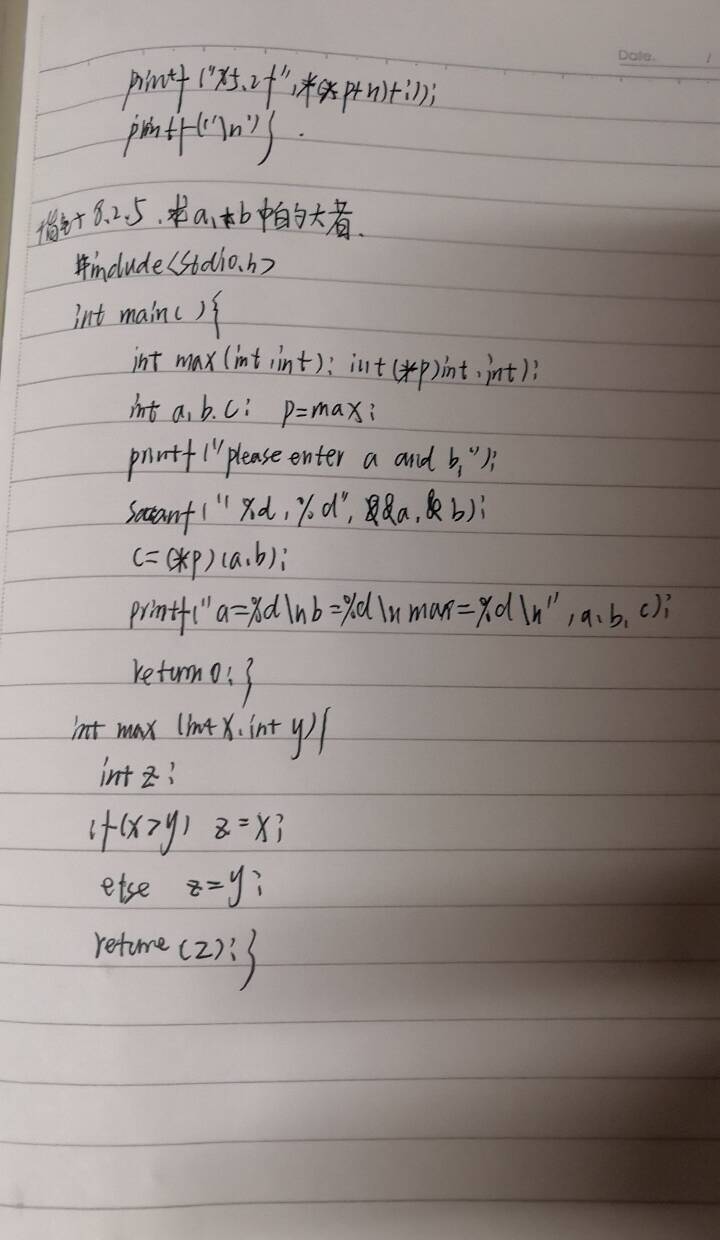 Date. /
printf("%5.2f",*(*(p+n)+i));
printf("\n")}
8.2.5. 求a,b中的大者.
#include<stdio.h>
int main(){
int max(int,int); int(*p)int,int);
int a,b,c; p=max;
printf("please enter a and b,");
scanf("%d,%d", &a,&b);
c=(*p)(a,b);
printf("a=%d\nb=%d\nmax=%d\n",a,b,c);
return 0;}
int max (int x,int y){
int z;
if(x>y) z=x;
else z=y;
returne(z);}